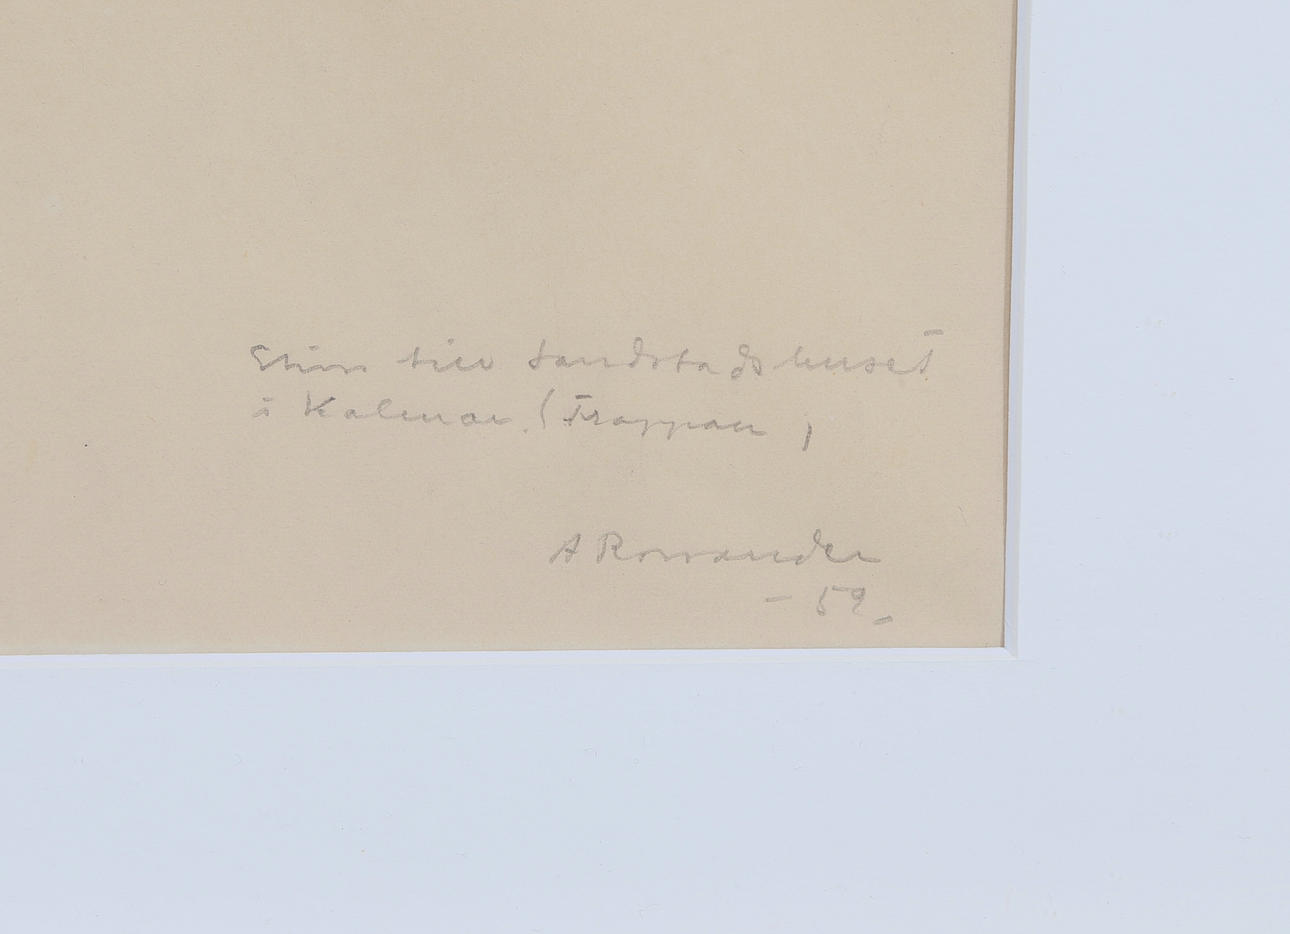 till Landstadshuset
i Kalmar. (Trappan)
A Rossander
- 59 -